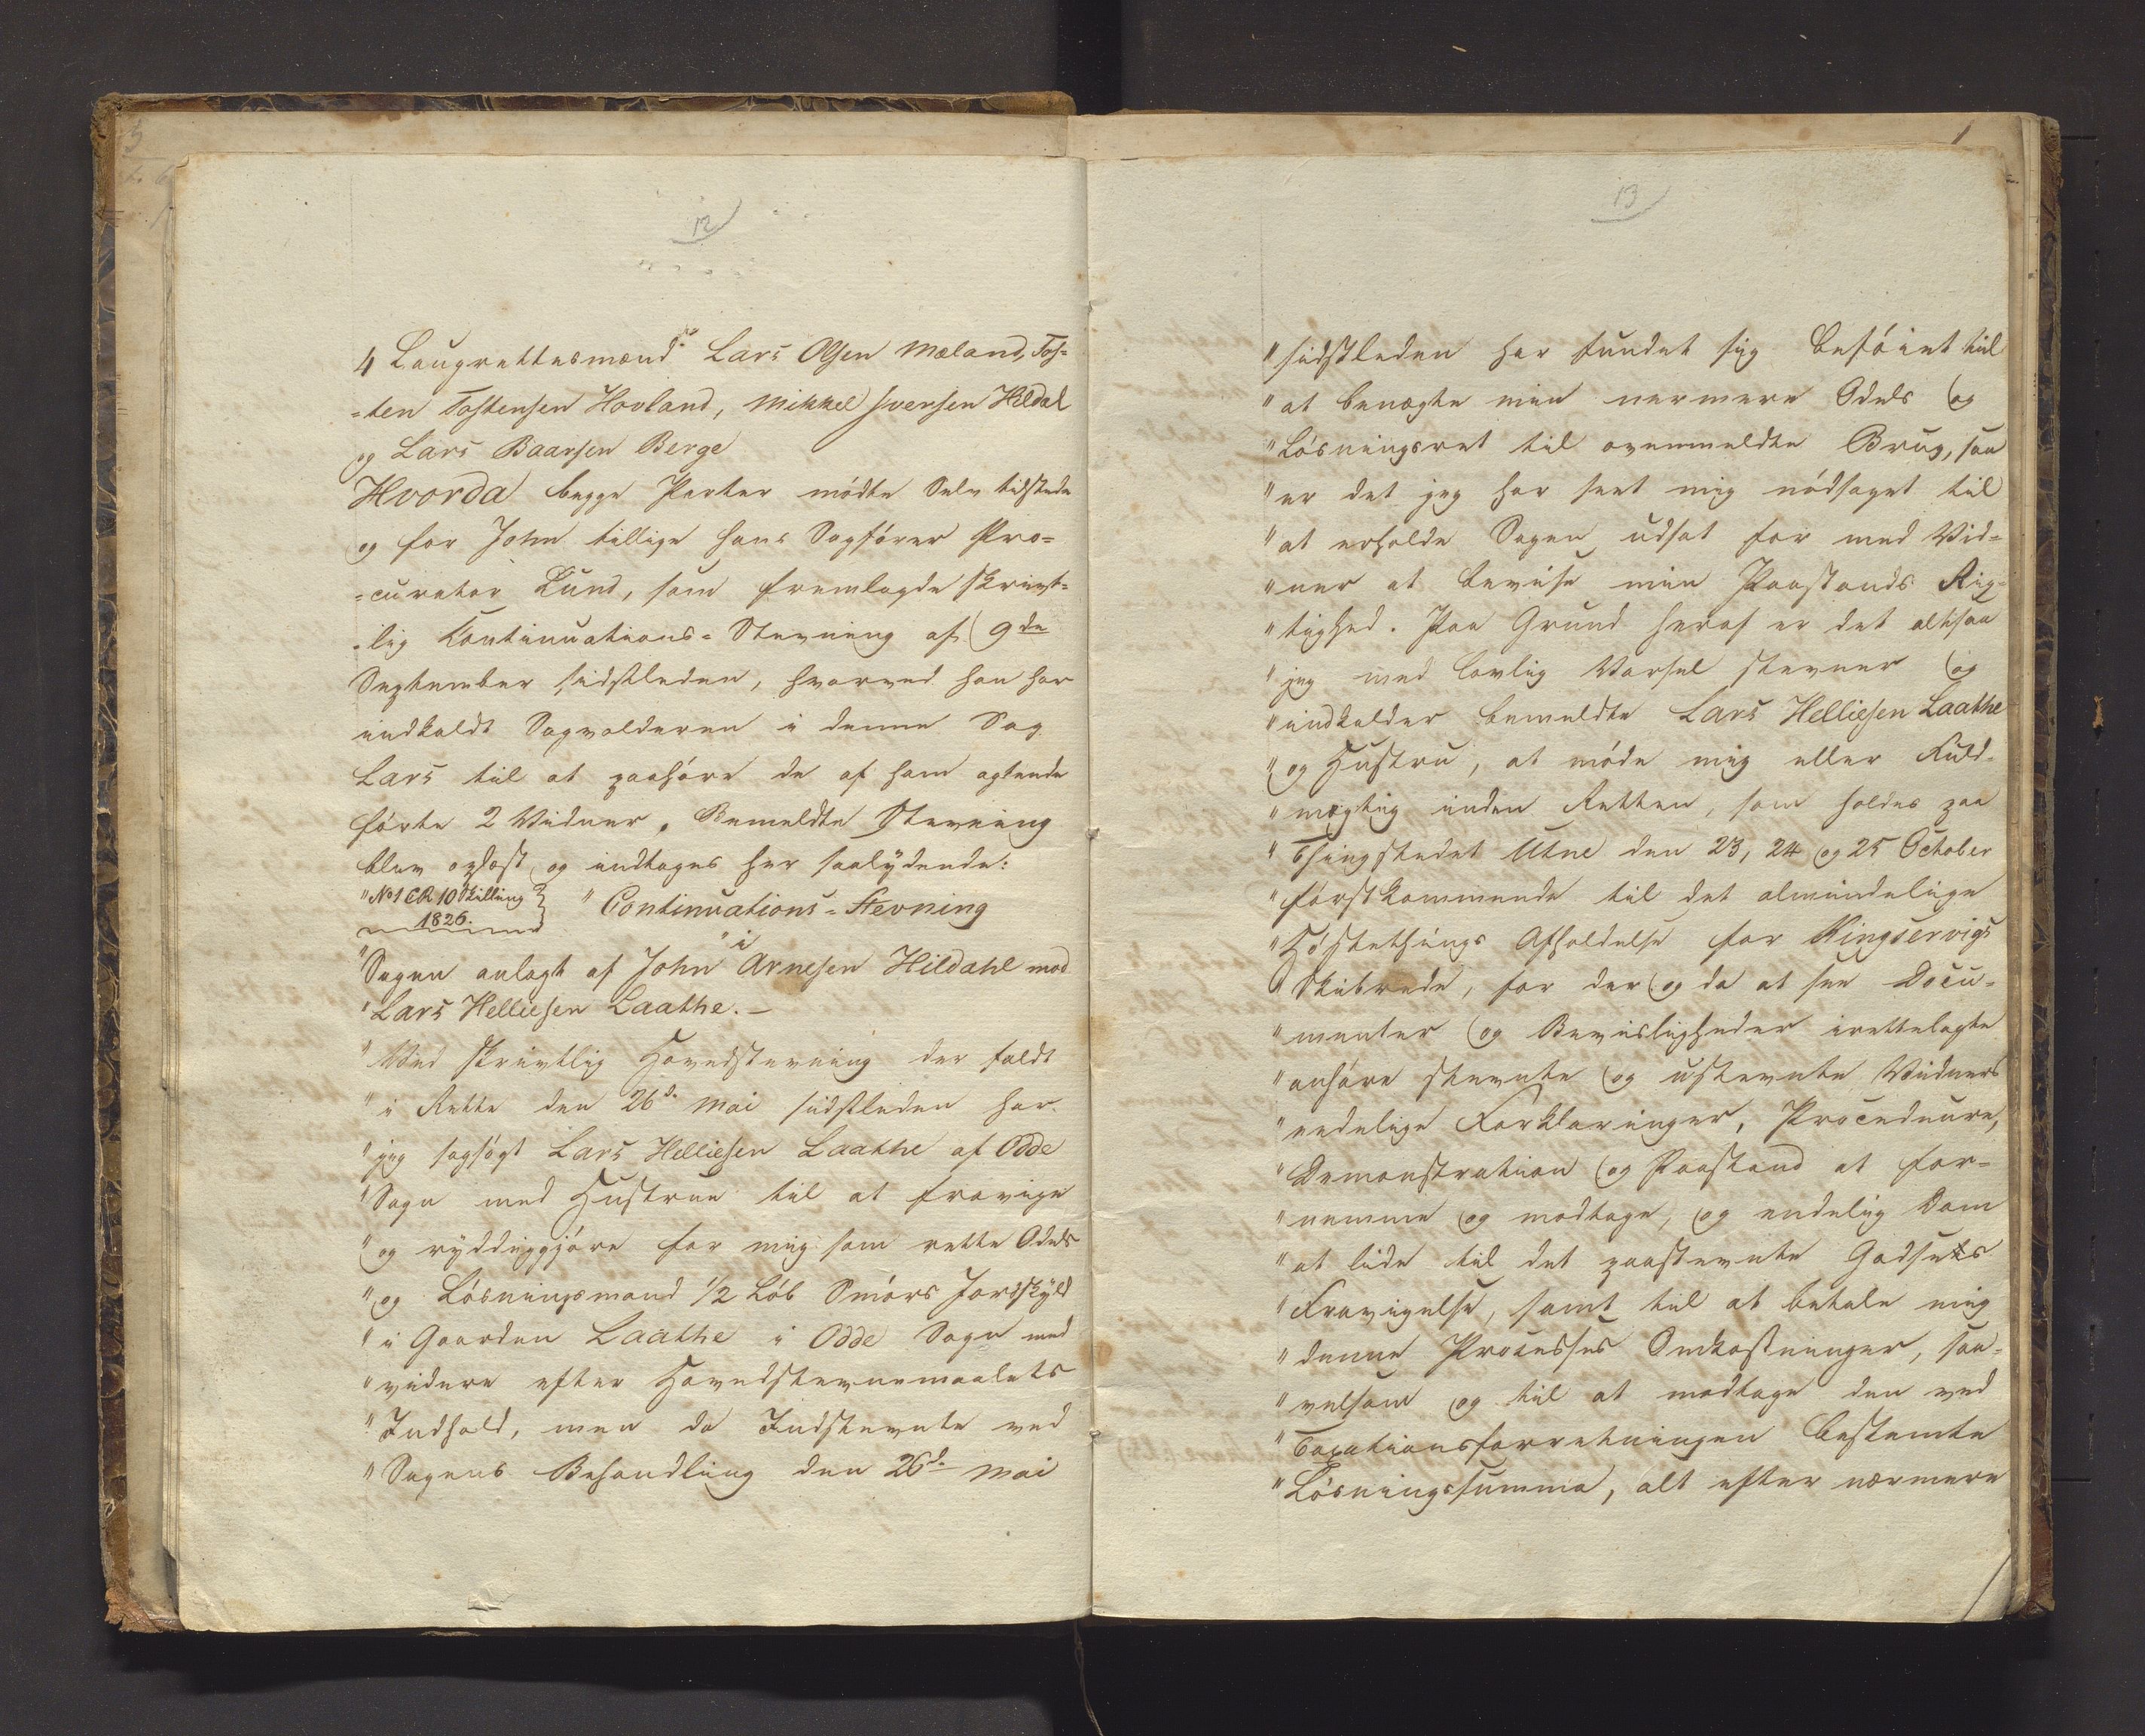 12
4 Laugrettesmænd Lars Olsen Mæland, Tos=
=ten Tostensen Hovland, Mikkel Iversen Hildal
og Lars Baarsen Berge
Hvorda begge Parter mødte Selv tilstede
og for John tillige hans Sagfører Pro=
=curator Lund, som fremlagde skrivt=
=lig Kontinuations=Stevning af 9de
September sidstleden, hvorved han har
indkaldt Sagvolderen i denne Sag
Lars til at paahøre de af ham agtende
førte 2 Vidner. Bemeldte Stevning
blev oplæst og indtages her saalydende:
"No 1 CR 10 Skilling
1826.
"Continuations=Stevning
"i
"Sagen anlagt af John Arnesen Hildahl mod
"Lars Helliesen Laathe.–
"Ved skrivtlig Hovedstevning der faldt
"i Rette den 26d. Mai sidstleden har
"jeg sagsøgt Lars Helliesen Laathe af Odde
"Sogn med Hustrue til at fravige
"og ryddiggjøre for mig som rette Odels
"og Løsningsmand 1/2 Løb Smørs Jordskyld
"i Gaarden Laathe i Odde Sogn med
"videre efter Hovedstevnemaalets
"Indhold, men da Indstevnte ved
"Sagens Behandling den 26d. Mai
13
"sidstleden har fundet sig beføiet til
"at benægte min nermere Odels og
"Løsningsret til ovenmeldte Brug, saa
"er det jeg har seet mig nødsaget til
"at erholde Sagen udsat for med Vid=
"ner at bevise min Paastands Rig=
"tighed. Paa Grund heraf er det altsaa
"jeg med lovlig Varsel stevner og
"indkalder bemeldte Lars Helliesen Laathe
"og Hustru, at møde mig eller Fuld=
"mægtig inden Retten, som holdes paa
"Thingstedet Utne den 23, 24 og 25 October
"førstkommende til det almindelige
"Høstethings Afholdelse for Kingservigs
"Skibrede, for der og da at see Docu=
"menter og Bevisligheder irettelagte
"anhøre stevnte og ustevnte Vidners
"eedelige Forklaringer, Proceduure,
"Demonstration og Paastand at for=
"nemme og modtage, og endelig Dom
"at lide til det paastevnte Godsets
"Fravigelse, samt til at betale mig
"denne Processes Omkostninger, saa=
"velsom og til at modtage den ved
"Taxationsforretningen bestemte
"Løsningssumma, alt efter nærmere